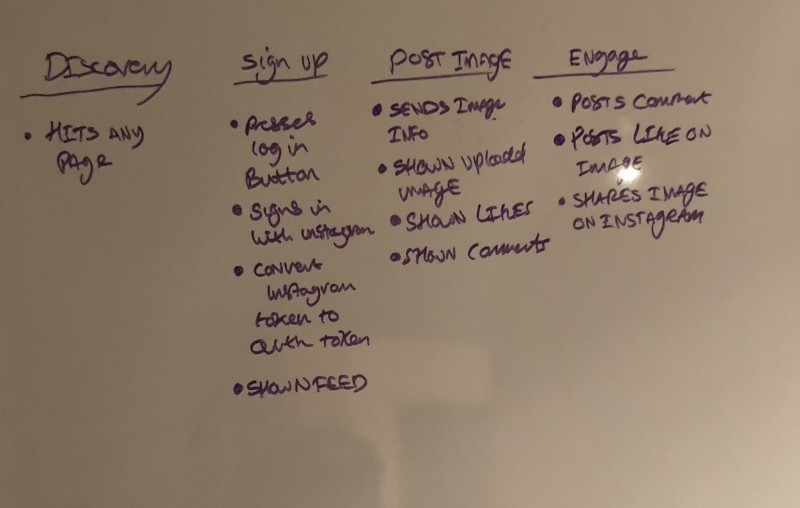 Discovery
• HITS ANY
PAGE
Sign up
• Presses
Log in
Button
• Signs in
with instagram
• Convert
Instagram
token to
auth token
• SHOWN FEED
POST IMAGE
• SENDS Image
INFO
• SHOWN uploaded
IMAGE
• SHOWN LIKES
• SHOWN Comments
Engage
• POSTS Comment
• POSTS LIKE ON
IMAGE
• SHARES IMAGE
ON INSTAGRAM